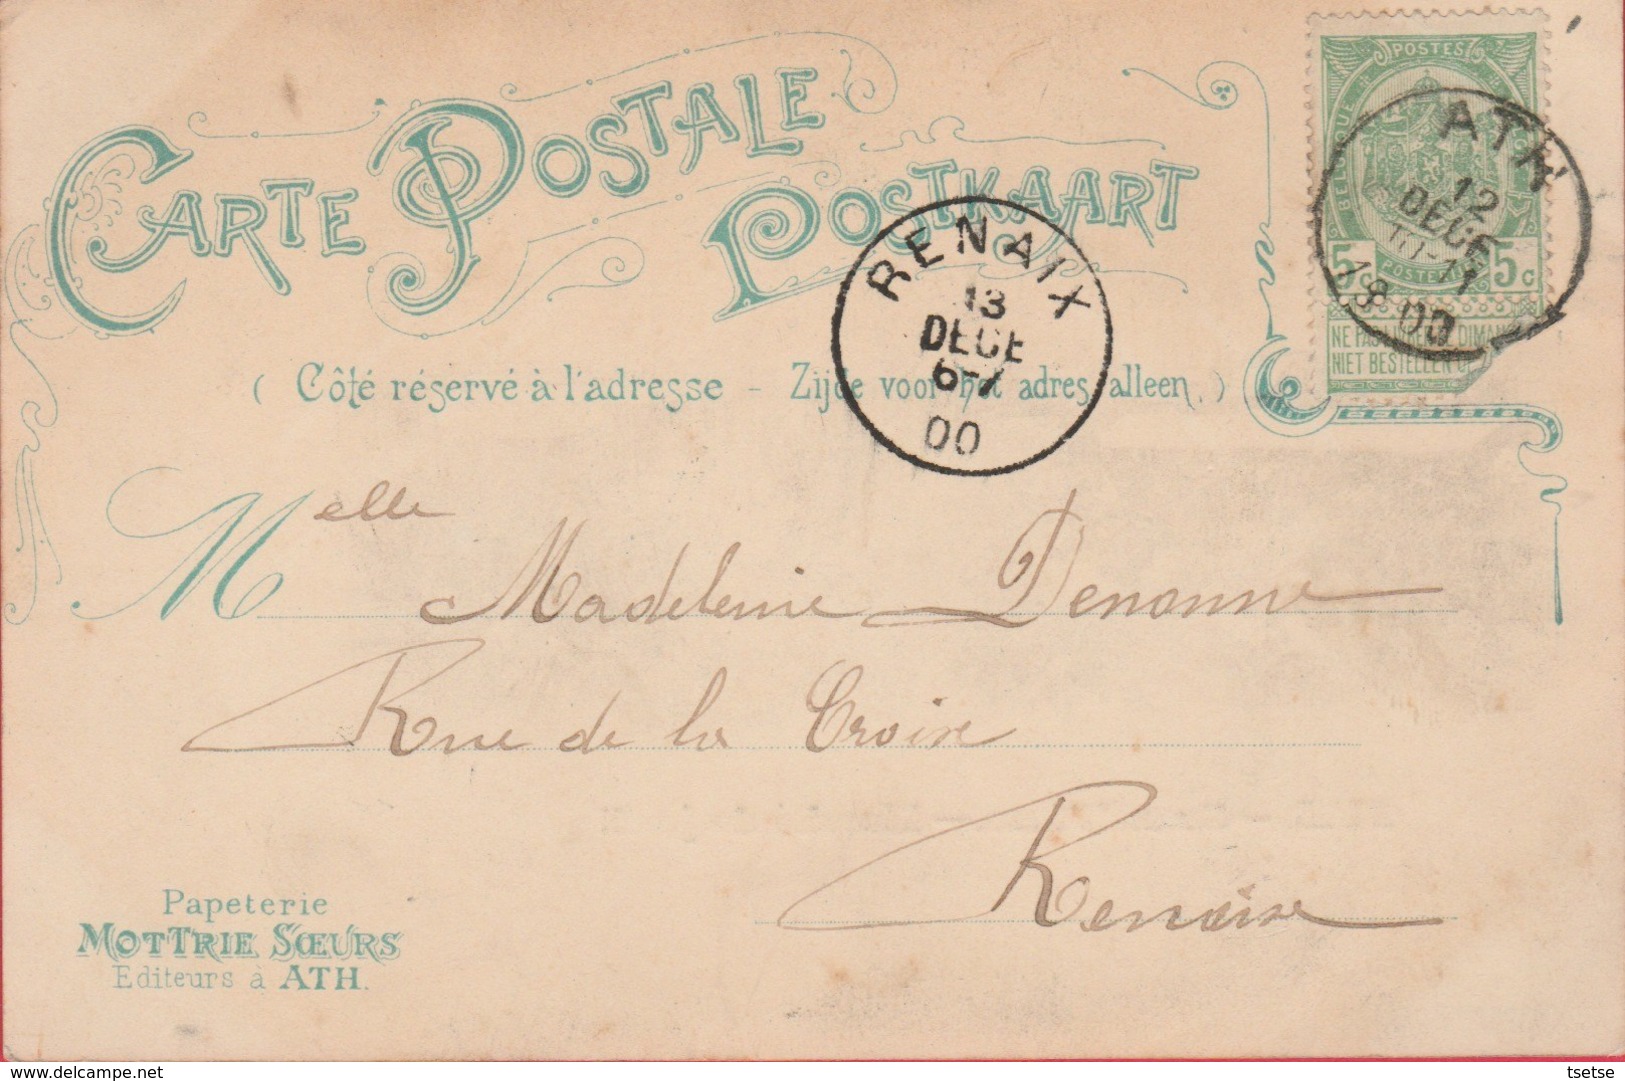 CARTE POSTALE
POSTKAART
( Côté réservé à l'adresse - Zijde voor het adres alleen. )
POSTES
BELGIQUE
5c 5c
POSTERIJEN
NE PAS LIVRER LE DIMANCHE
NIET BESTELLEN OP
ATH
12
DECE
10-11
1900
RENAIX
13
DECE
6-7
00
Melle Madeleine Denonne
Rue de la Croix
Renaix
Papeterie
MOTTRIE SŒURS
Editeurs à ATH.
tsetse